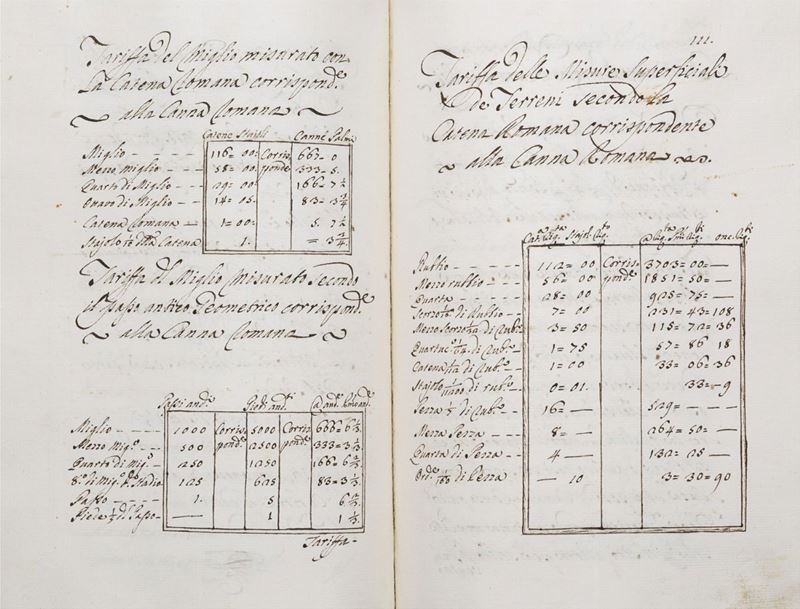 Tariffa del Miglio misurato con
La Catena Romana corrispond.e
alla Canna Romana
Catene Staioli Canne Palmi
Miglio 116= 00: Corris 667= 0
Mezzo miglio 58= 00 ponde 333= 5.
Quarto di Miglio 29= 00 166= 7 1/2
Ottavo di Miglio 14= 05. 83= 3 3/4
Catena Romana 1= 00: 5. 7 1/2
Staiolo 1/10 della Catena 1. =
Tariffa del Miglio misurato Secondo
il passo antico Geometrico corrispond.e
alla Canna Romana
Passi and.i Piedi ant.i
Miglio 1000 Corris 5000 Corris 666= 6 2/3
Mezzo Mig.o 500 ponde 2500 ponde 333= 3 1/3
Quarto di mig.o 250 1250 166= 6 2/3
8.o di Mig.o Stadio 125 625 83= 3 1/3
Passo 1. 5 6 2/3
Piede 1/5 di Passo — 1 1 1/3
Tariffa
111.
Tariffa delle Misure Superficiali
de Terreni Secondo la
Catena Romana corrispondente
alla Canna Romana
Rubbio 112= 00 Corris 3703= 00= —
Mezzo rubbio 56= 00 ponde 1851= 50= —
Quarta 28= 00 925= 75= —
Scorzo di Rubbio 7= 00 231= 43= 108
Mezzo Scorzo di Rub.o 3= 50 115= 72= 36
Quartuc.o 1/64 di Rub.o 1= 75 57= 86 18
Catena 1/112 di Rub.o 1= 00 33= 06= 36
Staiolo 1/11200 di rub.o 0= 01. 33= 9
Pezza 1/7 di Rub.o 16= — 529= — —
Mezza Pezza 8= — 264= 50= —
Quarta di Pezza 4 — 132= 25 —
Ord.e di Pezza — 10 3= 30= 90